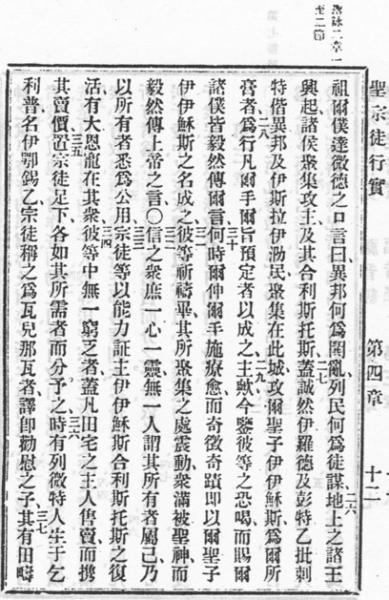 聖詠二章一
至二節
聖宗徒行實 第四章 十二
祖爾僕達微德之口言曰異邦何爲鬧亂列民何爲徒謀二六地上之諸王
興起諸侯聚集攻主及其合利斯托斯二七蓋誠然伊羅德及彭特乙批剌
特偕異邦及伊斯拉伊泐民聚集在此城攻爾聖子伊伊穌斯爲爾所
膏者二八爲行凡爾手爾旨預定者以成之二九主歟今鑒彼等之恐喝而賜爾
諸僕皆毅然傳爾言三十何時爾伸爾手施療愈而奇徵奇蹟即以爾聖子
伊伊穌斯之名成之三一彼等祈禱畢其所聚集之處震動衆滿被聖神而
毅然傳上帝之言○三二信之衆庶一心一靈無一人謂其所有者屬己乃
以所有者悉爲公用三三宗徒等以能力証主伊伊穌斯合利斯托斯之復
活有大恩寵在其衆三四彼等中無一窮乏者蓋凡田宅之主人售賣而携
其賣價三五置宗徒足下各如其所需者而分予之三六時有列微特人生于乞
利普名伊鄂錫乙宗徒稱之爲瓦兒那瓦者譯即勸慰之子三七其有田疇